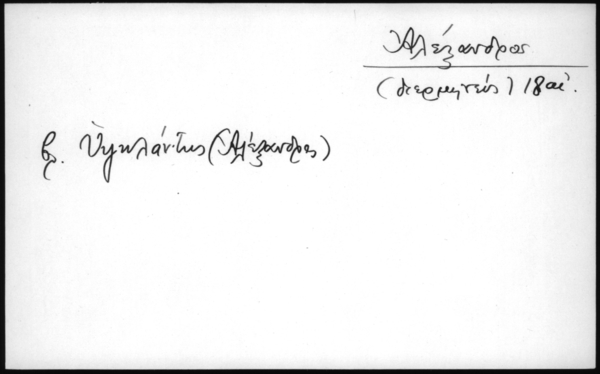 Ἀλέξανδρος
(διερμηνεύς) 18 αἰ.
βλ. (Ἀλέξανδρος)